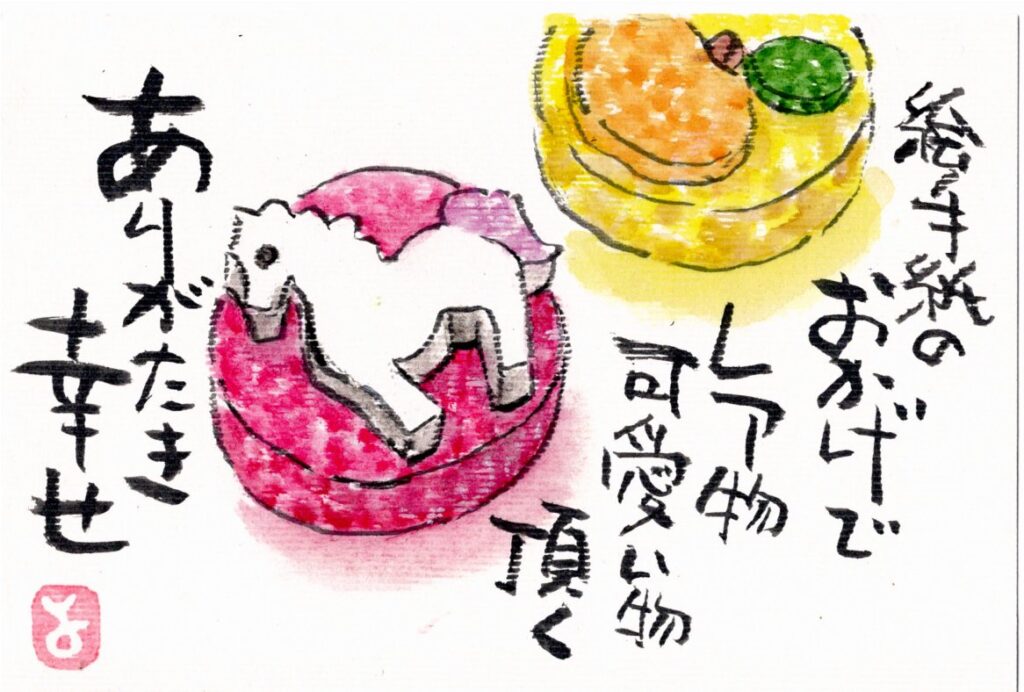 絵手紙の
おかげで
レア物
可愛い物
頂く
ありがたき
幸せ
よ